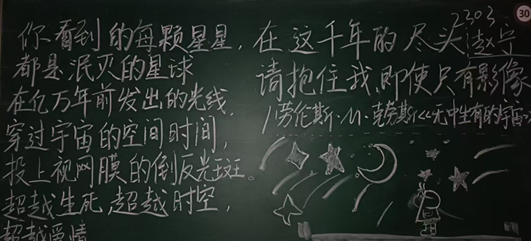 你看到的每颗星星,
都是泯灭的星球
在亿万年前发出的光线,
穿过宇宙的空间时间,
投上视网膜的倒反光斑.
超越生死,超越时空,
超越爱情
在这千年的尽头
请抱住我,即使只有影像
/劳伦斯·M·克劳斯<<无中生有的宇宙>>
2303.
赵宁
30